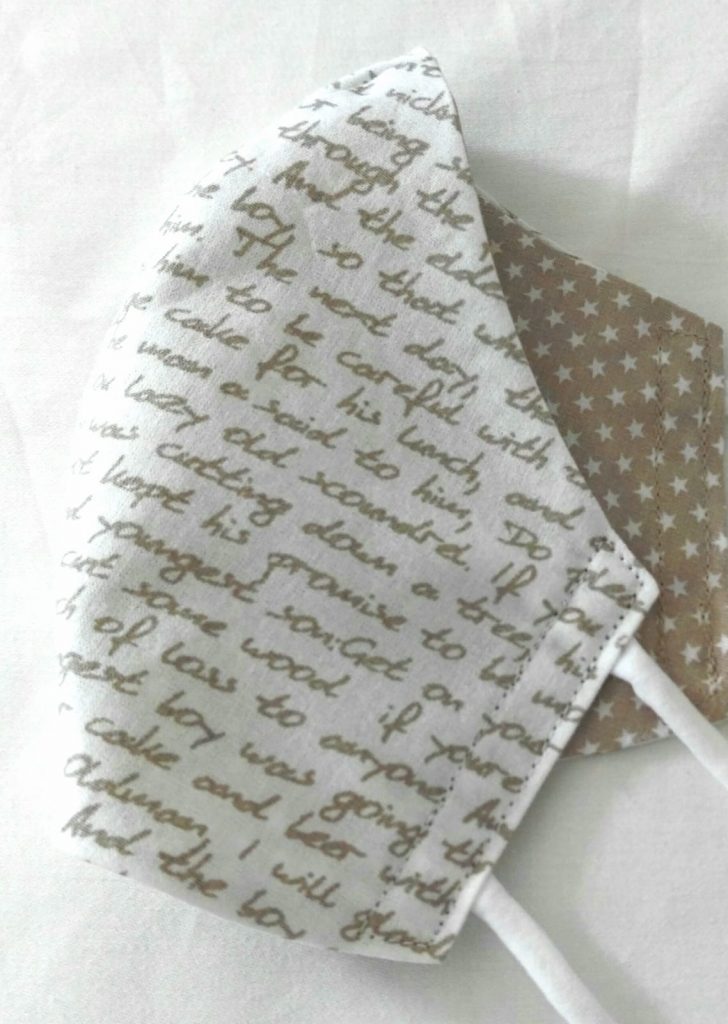 being
through the
And the
boy so that
him. The next day, the
him to be careful with
cake for his lunch, and
man a said to him, Do
lazy old scoundrel. If you
was cutting down a tree, his
kept his promise to be
youngest son:Get on your
some wood if youre
of loss to anyone
boy was going
cake and beer with
oldman, I will
And the boy